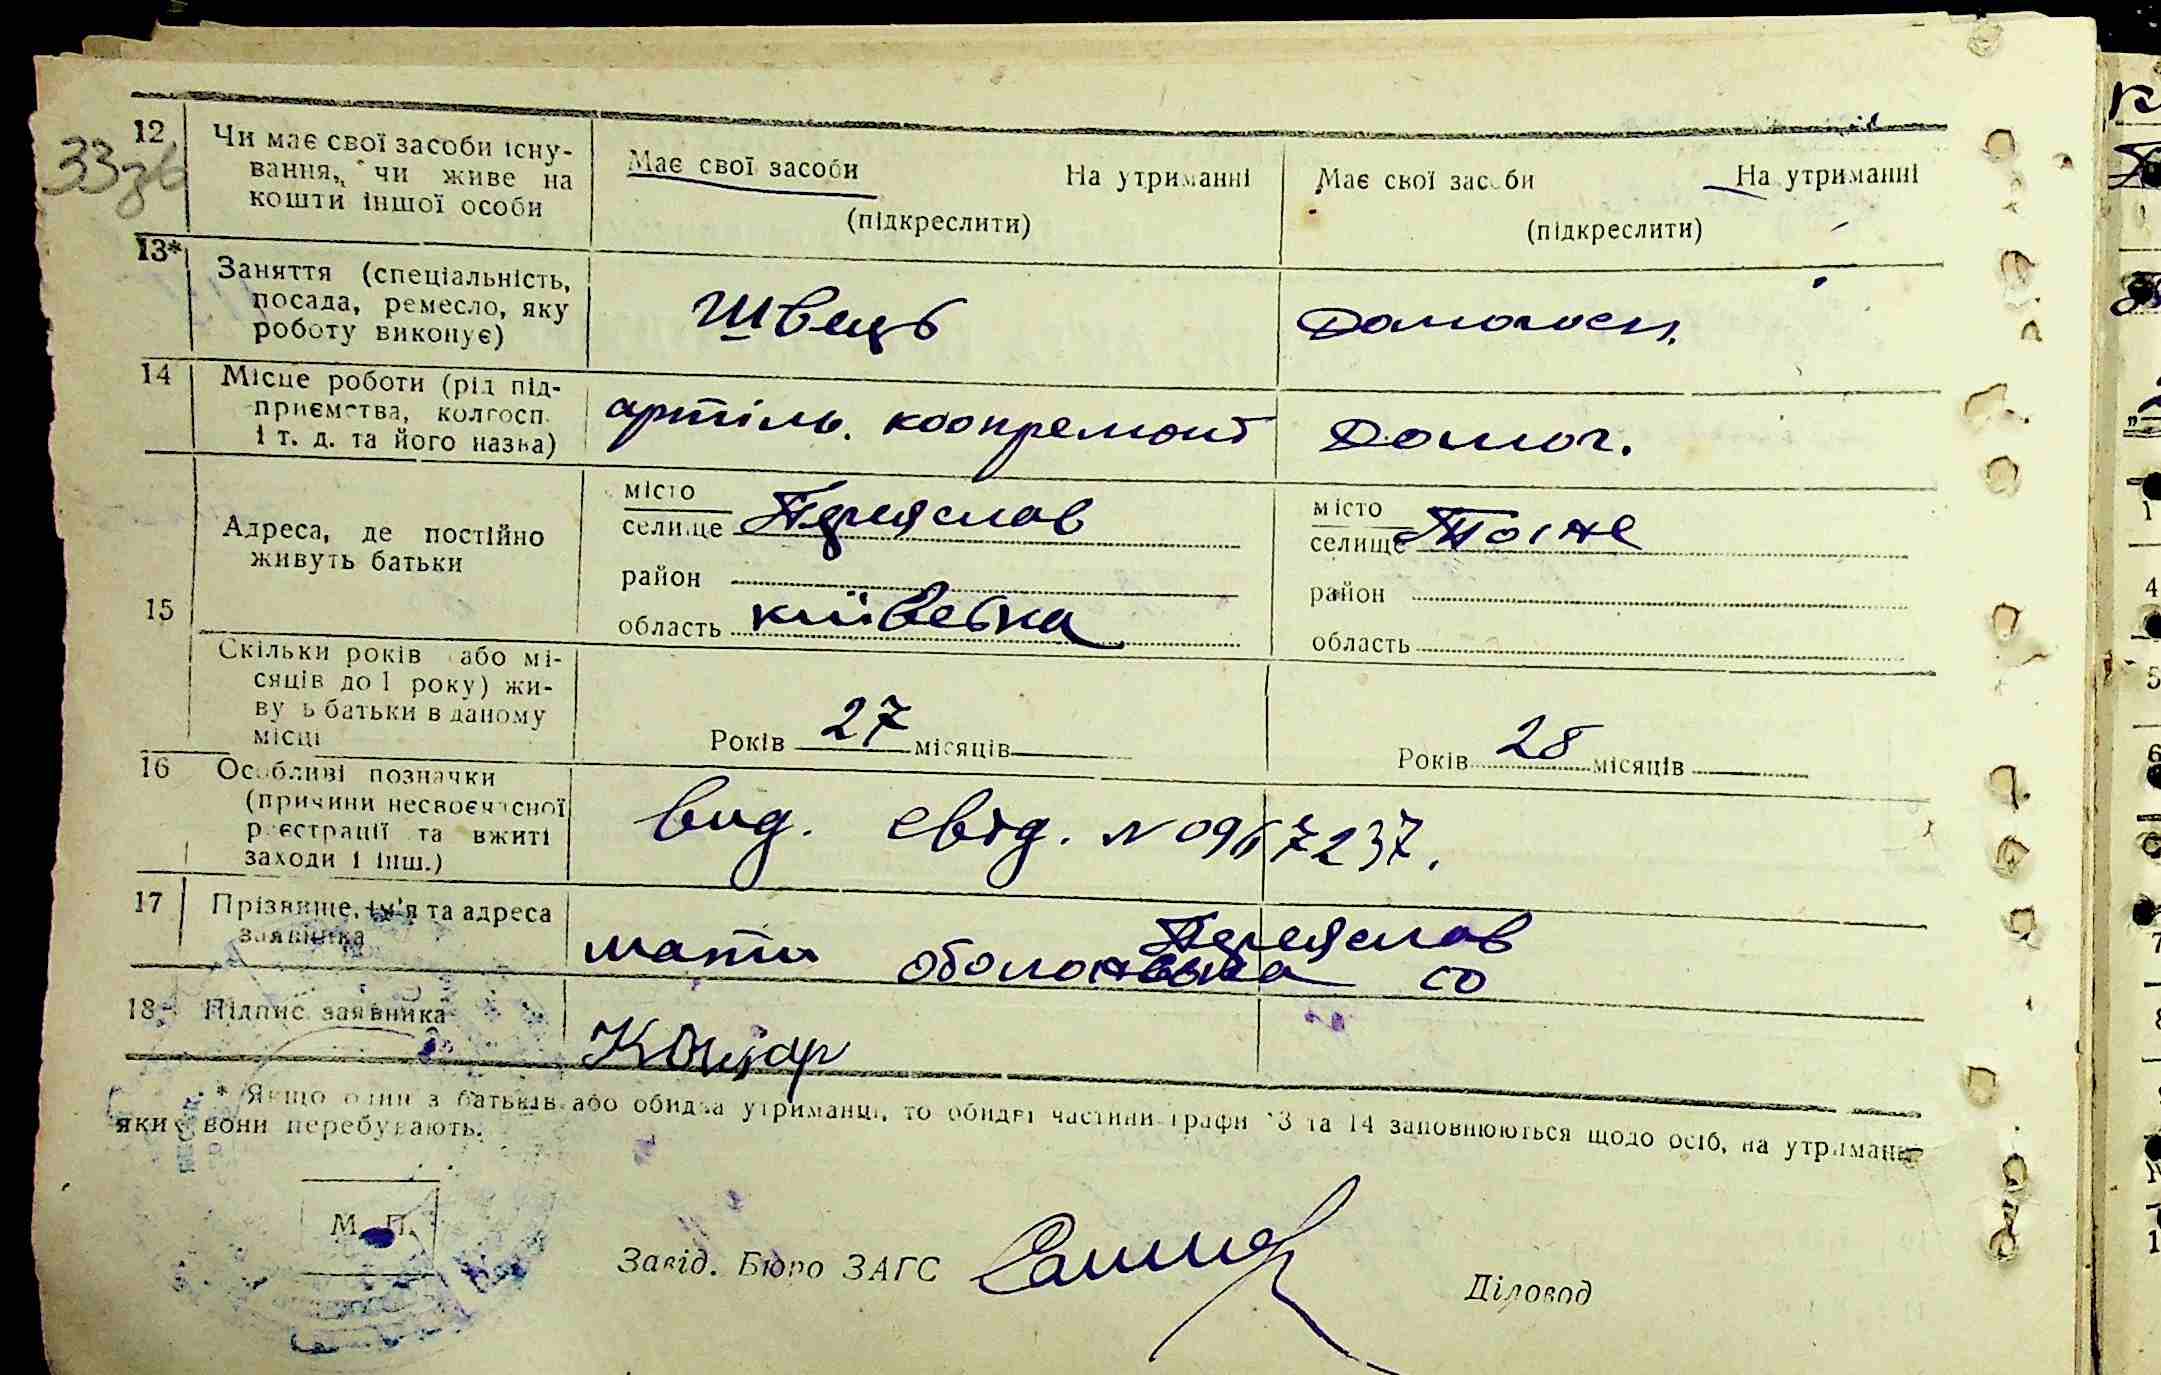 33зв
12 Чи має свої засоби існу-
вання, чи живе на
кошти іншої особи
Має свої засоби На утриманні
(підкреслити)
Має свої засоби На утриманні
(підкреслити)
13* Заняття (спеціальність,
посада, ремесло, яку
роботу виконує)
Швець
Домогосп.
14 Місце роботи (рід під-
приємства, колгосп.
і т. д. та його назва)
артіль. коопремонт
Домог.
15 Адреса, де постійно
живуть батьки
місто
селище Переяслав
район
область київська
місто
селище Тоже
район
область
Скільки років або мі-
сяців до 1 року) жи-
ву ь батьки в даному
місці
Років 27 місяців
Років 28 місяців
16 Особливі позначки
(причини несвоєчасної
реєстрації та вжиті
заходи і інш.)
вид. свід. N 0967237.
17 Прізвище, ім'я та адреса
заявника
мати Переяслав
оболонська 60
18 Підпис заявника
* Якщо один з батьків або обидва утриманці, то обидві частини графи 13 та 14 заповнюються щодо осіб, на утриманні
яких вони перебувають.
М. П.
Завід. Бюро ЗАГС
Діловод